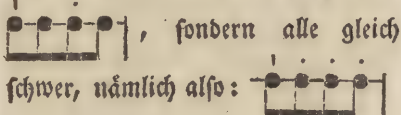 , ſondern alle gleich
ſchwer, nämlich alſo: